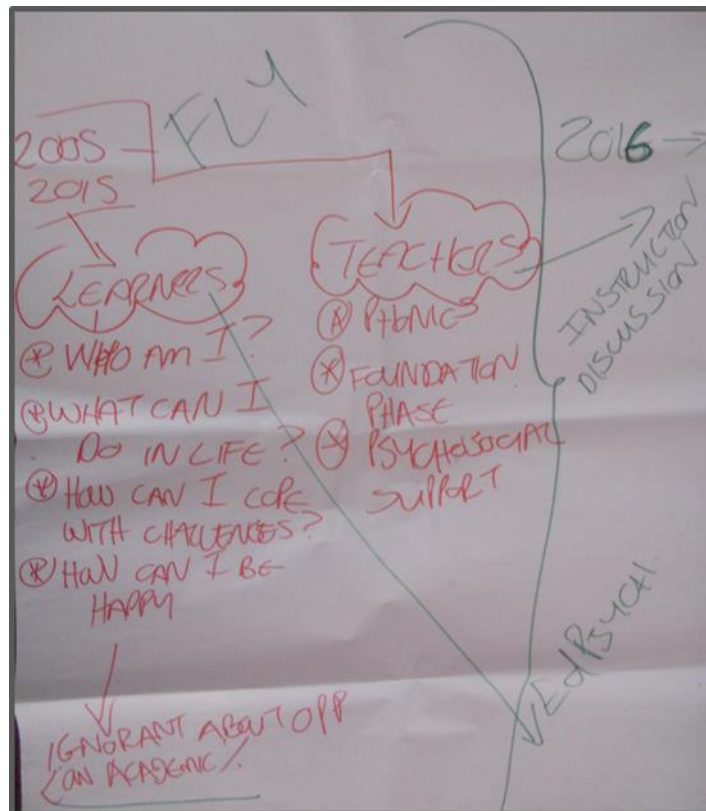 FLY
2005
2015
2016
LEARNERS
WHO AM I?
WHAT CAN I
DO IN LIFE?
HOW CAN I COPE
WITH CHALLENGES?
HOW CAN I BE
HAPPY
IGNORANT ABOUT OPP
ACADEMIC
TEACHERS
PHONICS
FOUNDATION
PHASE
PSYCHOSOCIAL
SUPPORT
INSTRUCTION
DISCUSSION
EDPSYCH